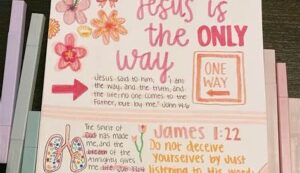 Jesus is
the ONLY
way
Jesus said to him, "I am
the way, and the truth, and
the life; no one comes to the
Father, but by me." John 14:6
ONE
WAY
The Spirit of
God has made
me, and the
breath of the
Almighty gives
me life. Job 33:4
James 1:22
Do not deceive
yourselves by just
listening to His word;